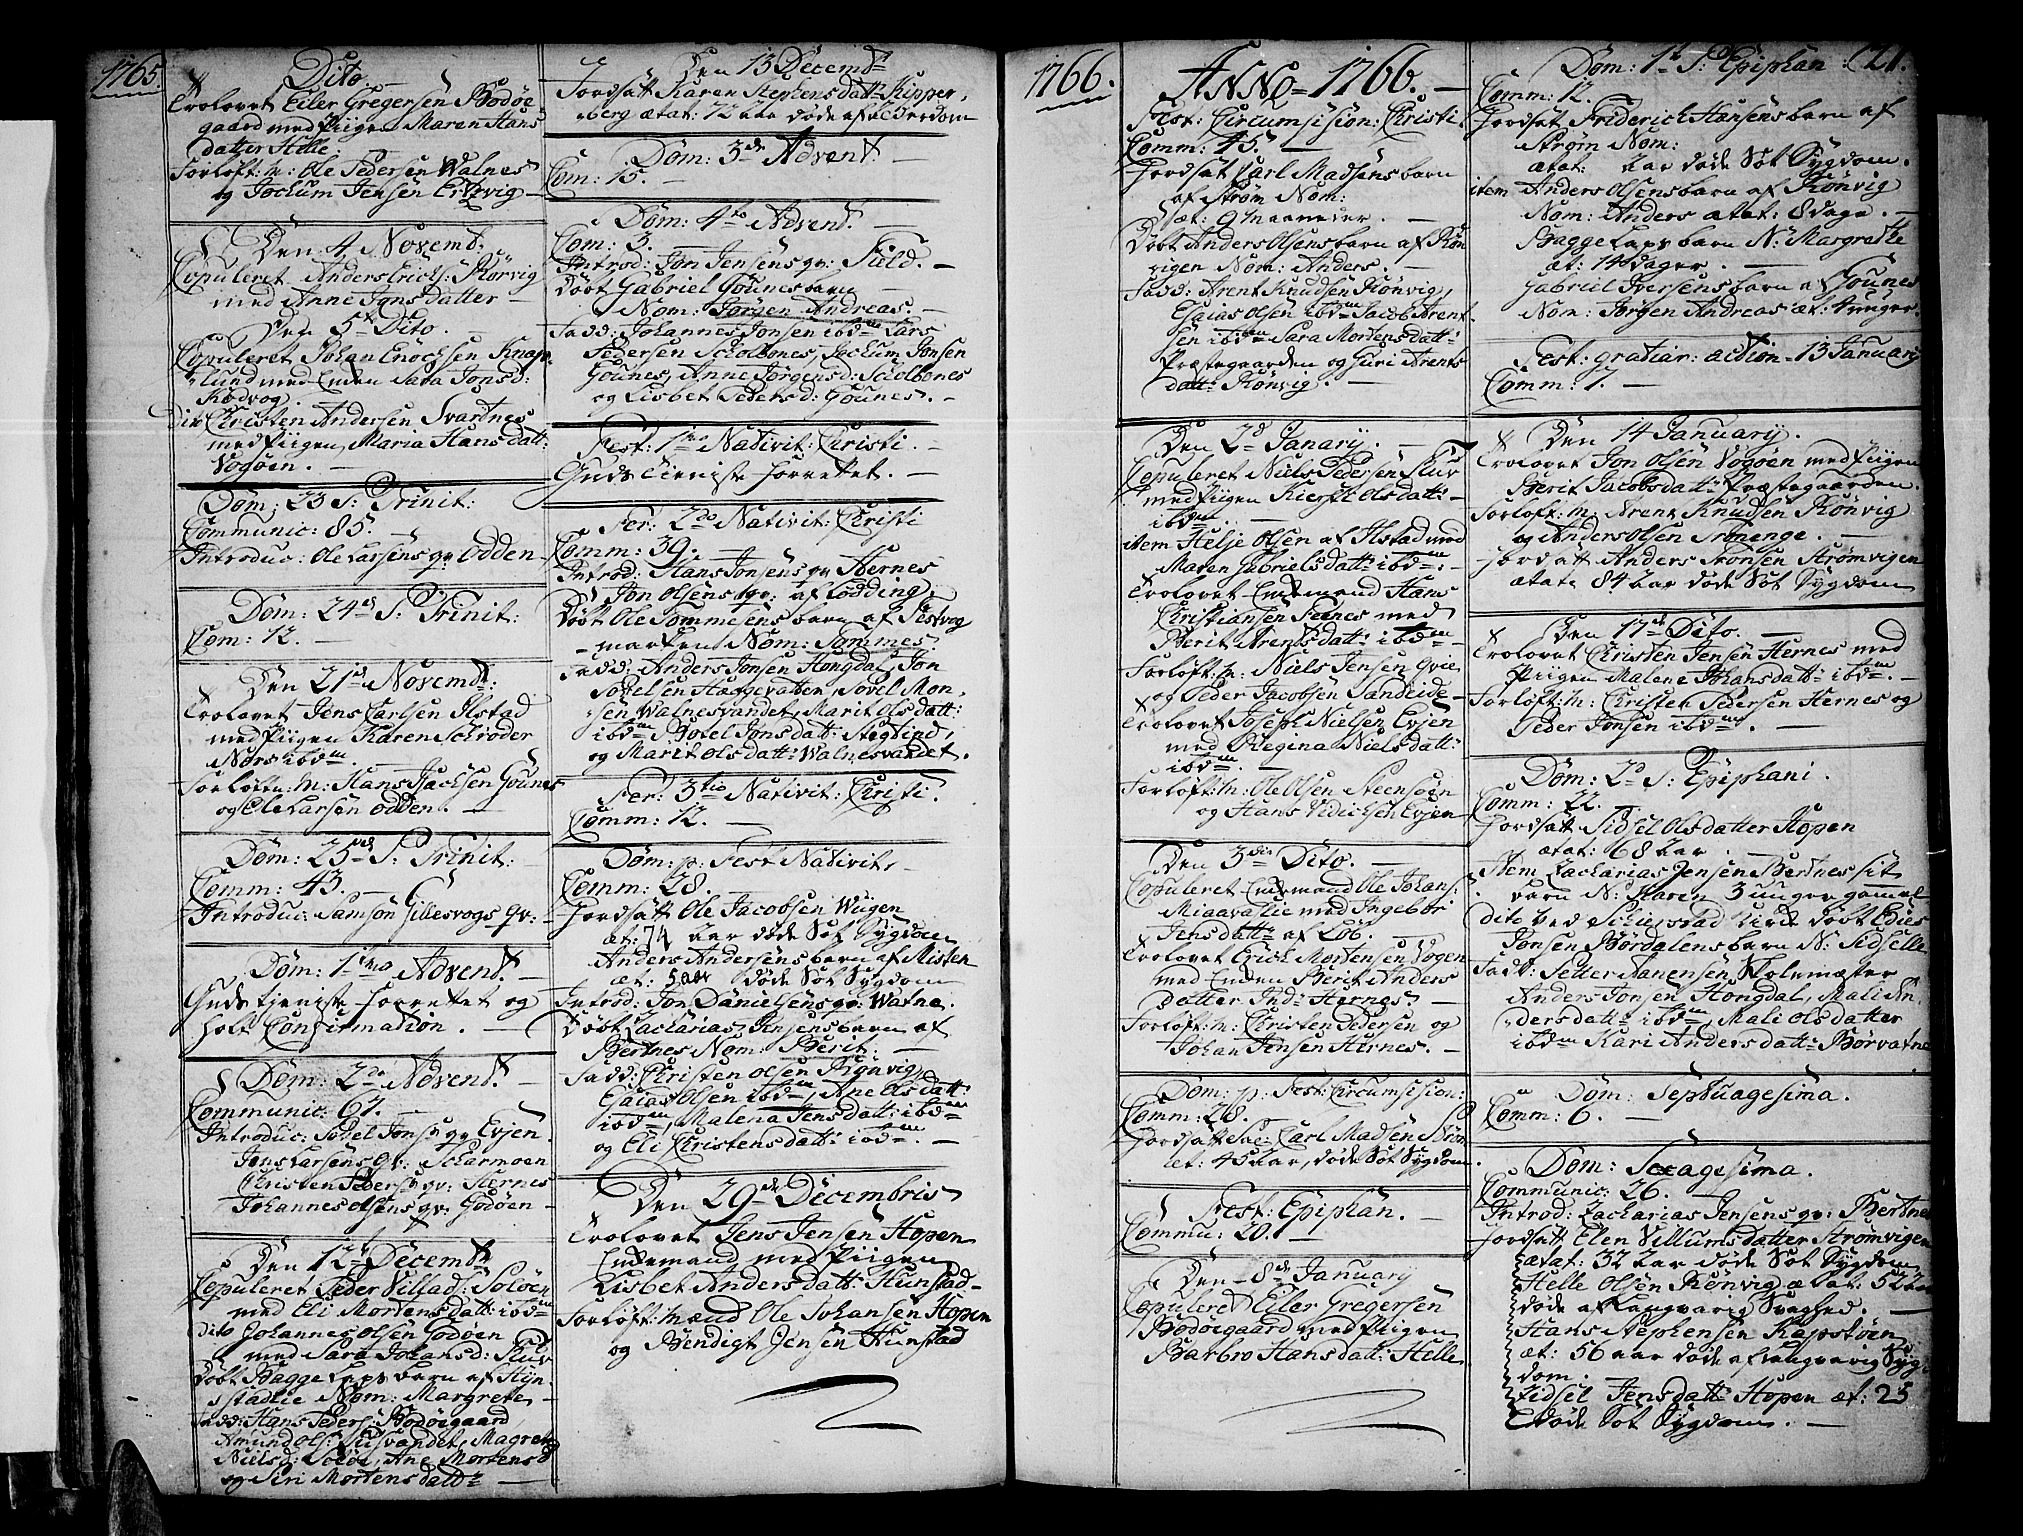 1765.
Dito.
Trolovet Eiler Gregersen Bodøe
gaard med Piigen Maren Hans
datter Helle.
Forløft: m: Ole Pedersen Walnes
og Jochum Jensen
Den 4 Novemb:
Copuleret Anders Erichs: Rørvig
med Anne Jons datter
Den 5te Dito.
Copuleret Johan Enochsen Knap
lund med Enken Sara Jonsd:
Rødvog.
dito Christen Andersen Svartnes
med Piigen Maria Hans datt:
Vogøen.
Dom: 23 S: Trinit:
Communic: 85.
Introduc: Ole Larsens qv: Odden
Dom: 24de S: Trinit:
Com: 12.
Den 21de Novemb:
Trolovet Jens Carlsen Ilstad
med Piigen Karen Schrøder
Nors ibdm.
Forløften: m: Hans Isachsen Gounes
og Ole Larsen Odden.
Dom: 25de S: Trinit:
Comm: 43.
Introduc: Samson Gillesvogs qv:
Dom: 1mo Advent
Guds tieniste forrettet og
holt Confirmation.
Dom: 2de Advent.
Communic: 67.
Introduc: Povel Jons: qv: Evjen.
Jens Larsens qv: Scharmoen
Christen Peders: qv: Særnes
Johannes Olsens qv: Godøen
Den 12te Decemb:
Copuleret Peder Villads: Soløen
med Eli Mortens datt: ibdm
dito Johannes Olsen Godøen
med Sara Johansd: Skiv
Døbt Bagge Laps barn af Hun
stadlie Nom: Margrete
Fadd: Hans Peders: Bodøegaard
Amund Ols: Fusvandet, Magrete
Nielsd: Soløe, Ane Mortensd
og Siri Mortens datt:
Den 13 Decemb:
Jordsatt Karen Stephens datt: Kipper
berg ætat: 72 aar døde af Alderdom
Dom: 3de Advent.
Com: 15.
Dom: 4to Advent.
Com: 3.
Introd: Jon Jensens qv: Field.
Døbt Gabriel Gounes barn
Nom: Jørgen Andreas.
Fadd: Johannes Jonsen ibdm Lars
Pedersen Scholbones, Jochum Jonsen
Gounes, Anne Jørgensd: Scholbenes
og Lisbet Pedersd: Gounes.
Fest: 1mo Nativit: Christi.
Guds Tieniste forrettet.
Fer: 2do Nativit: Christi
Comm: 39.
Introd: Hans Jonsens qv: Hernes
Jon Olsens qv: af Lødding,
Døbt Ole Tommesens barn af Festvog
marken Nom: Tommes.
Fadd: Anders Jonsen Hongdal, Jon
Povelsen Haggevatten, Povel Mon
sen Walnesvandet, Marit Ols datt:
ibdm Botel Jonsdatt: Stegtind,
og Marit Ols datt: Walnesvandet.
Fer: 3tio Nativit: Christi.
Comm: 12.
Dom: p: Fest Nativit.
Comm: 28.
Jordsatt Ole Jacobsen Wugen
æt: 74 aar døde Sot Sygdom
Anders Andersens barn af Misten
æt: 5 aar døde Sot Sygdom
Introd: Jon Danielsens qv: Watne.
Døbt Zacharias Jensens barn af
Bertnes Nom: Berit.
Fadd: Christen Olsen Rønvig,
Esaias Olsen ibdm, Ane Ols datt:
ibdm, Malena Jensdatt: ibdm
og Eli Christens datt: ibdm.
Den 29de Decembris
Trolovet Jens Jensen Hopen
Enkemand med Piigen
Lisbet Anders datt: Hunstad
Forløft: mænd Ole Johansen Hopen
og Bendigt Jensen Hunstad
1766.
ANNO 1766.
Fest: Circumsision: Christi.
Comm: 45.
Jordsat Carl Madsens barn
af Strøm Nom:
æt: 9 maaneder.
Døbt Anders Olsens barn af Røn
vigen Nom: Anders.
Fadd: Arent Knudsen Rønvig,
Esaias Olsen ibdm Jacob Arent
sen ibdm Sara Mortens datt:
Præstegaarden og Guri Arents
datt: Rønvig.
Den 2d Janarij.
Copuleret Niels Pedersen Skiv
med Piigen Kierst: Ols datt:
ibdm.
item Helje Olsen af Ilstad med
Maren Gabriels datt: ibdm.
Trolovet Enkemand Hans
Christiansen Seenes med
Berit Arents datt: ibdm
Forløft: m: Niels Jensen Evie
og Peder Jacobsen Sandeide
Trolovet Joseph Nielsen Evjen
med Regina Niels datt:
ibdm.
Forløft: m: Ole Olsen Steensøen
og Hans Vidichsen Evjen
Den 3die Dito.
Copuleret Enkemand Ole Johans:
Miaavatlie med Ingebor
Jens datt: af Løb.
Trolovet Erick Mortensen Vogen
med Enken Berit Anders
datter Ind: Hernes
Forløft: m: Christen Pedersen og
Johan Jensen Hernes.
Dom: p: Fest: Circumsision:
Comm: 28.
Jordsatt Sac: Carl Madsen Strøm
æt: 45 aar, døde Sot Sygdom.
Fest: Epiphan.
Commu: 20.
Den 8de January
Copuleret Eiler Gregersen
Bodøegaard med Piigen
Barbro Hans datt: Helle
21.
Dom: 1te S: Epiphan:
Comm: 12.
Jordsat Friderich Hansens barn af
Strøm Nom:
ætat: aar døde Sot Sygdom.
item Anders Olsens barn af Rønvig
Nom: Anders ætat: 8 dage.
Bagge Laps barn N: Margrethe
æt: 14 dager.
Gabriel Iversens barn af Gounes
Nom: Jørgen Andreas æt: 4 uger.
Fest: gratiar: action 13 January
Comm: 7.
Den 14 January.
Trolovet Jon Olsen Vogøen med Piigen
Berit Jacobs datt: Præstegaarden.
Forløft: m: Arent Knudsen Rønvig
og Anders Olsen Trønenge.
Jordsatt Anders Tronsen Strømvigen
ætat: 84 aar døde Sot Sygdom
Den 17de Dito.
Trolovet Christen Jensen Hernes med
Piigen Malene Johans datt: ibdm.
Forløft: m: Christen Pedersen Hernes og
Peder Jonsen ibdm.
Dom: 2d S: Epiphani.
Comm: 22.
Jordsatt Sidsel Ols datter Hopen
ætat: 68 aar.
Item Zacharias Jensen Bertnes sit
barn N: Karen 3 uuger gammel
dito ved Schierstad kirke døbt Edies
Jonsen Børdalens barn N: Sidselle
Fadd: Petter Aanensen Skolemester
Anders Jonsen Hongdal, Mali An
dersdatt: ibdm, Mali Ols datter
ibdm Kari Anders datt: Børvatne
Dom: Septuagesima.
Comm: 6.
Dom: Sexagesima.
Communic: 26.
Introd: Zacharias Jensens qv: Bertnes
Jordsatt Elen Villums datter Strømvigen
ætat: 32 aar døde Sot Sygdom
Helle Olsen Rønvig ætat: 52 aar
døde af langvarig Svaghed.
Hans Stephensen Kapstøen
æt: 56 aar døde af langvarig Syg
dom.
Sidsel Jens datt: Hopen æt: 25
døde Sot Sygdom.